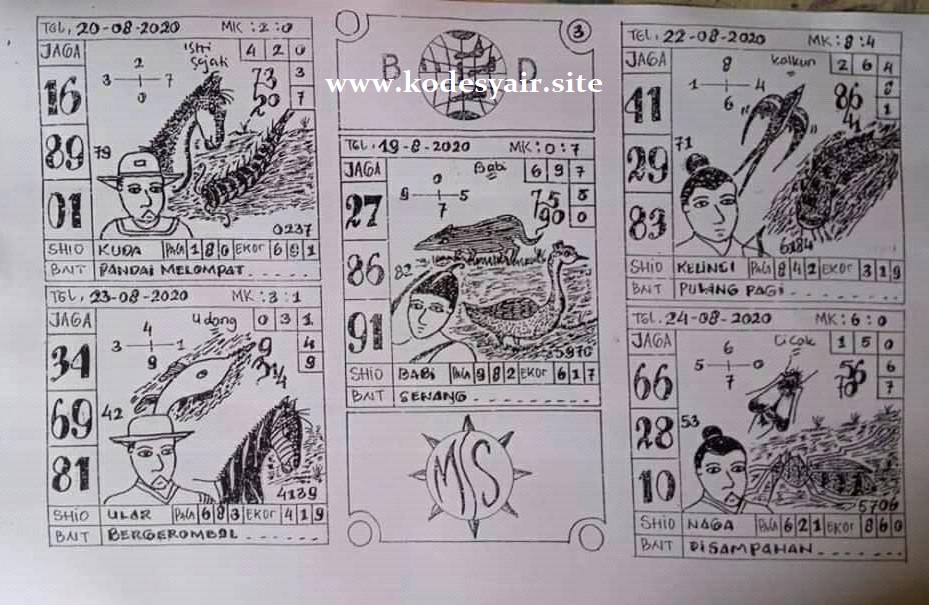 TGL, 20-08-2020 MK:2:0
JAGA
Istri Sejati
4 2 0
3
7
2
3 7
0
73
20
16
89
01
79
0237
SHIO KUDA PALA 1 8 0 EKOR 6 9 1
BNT PANDAI MELOMPAT......
TGL, 23-08-2020 MK:3:1
JAGA
Udang
0 3 1
4
9
4
3 1
9
34
69
81
42
4139
SHIO ULAR PALA 6 8 3 EKOR 4 1 9
BNT BERGEROMBOL......
3
B D
www.kodesyair.site
TGL, 19-8-2020 MK:0:7
JAGA
Babi
6 9 7
8
0
0
9 5
7
75
90
27
86
91
82
5970
SHIO BABI PALA 9 8 2 EKOR 6 1 7
BNT SENANG
MS
TGL, 22-08-2020 MK:8:4
JAGA
Kalkun
2 6 4
8
1
8
1 4
6
86
41
41
29
83
71
6184
SHIO KELINCI PALA 8 4 2 EKOR 3 1 9
BNT PULANG PAGI
TGL, 24-08-2020 MK:6:0
JAGA
Cicak
1 5 0
6
7
6
5 0
7
56
66
28
10
53
5706
SHIO NAGA PALA 6 2 1 EKOR 8 6 0
BNT DISAMPAHAN